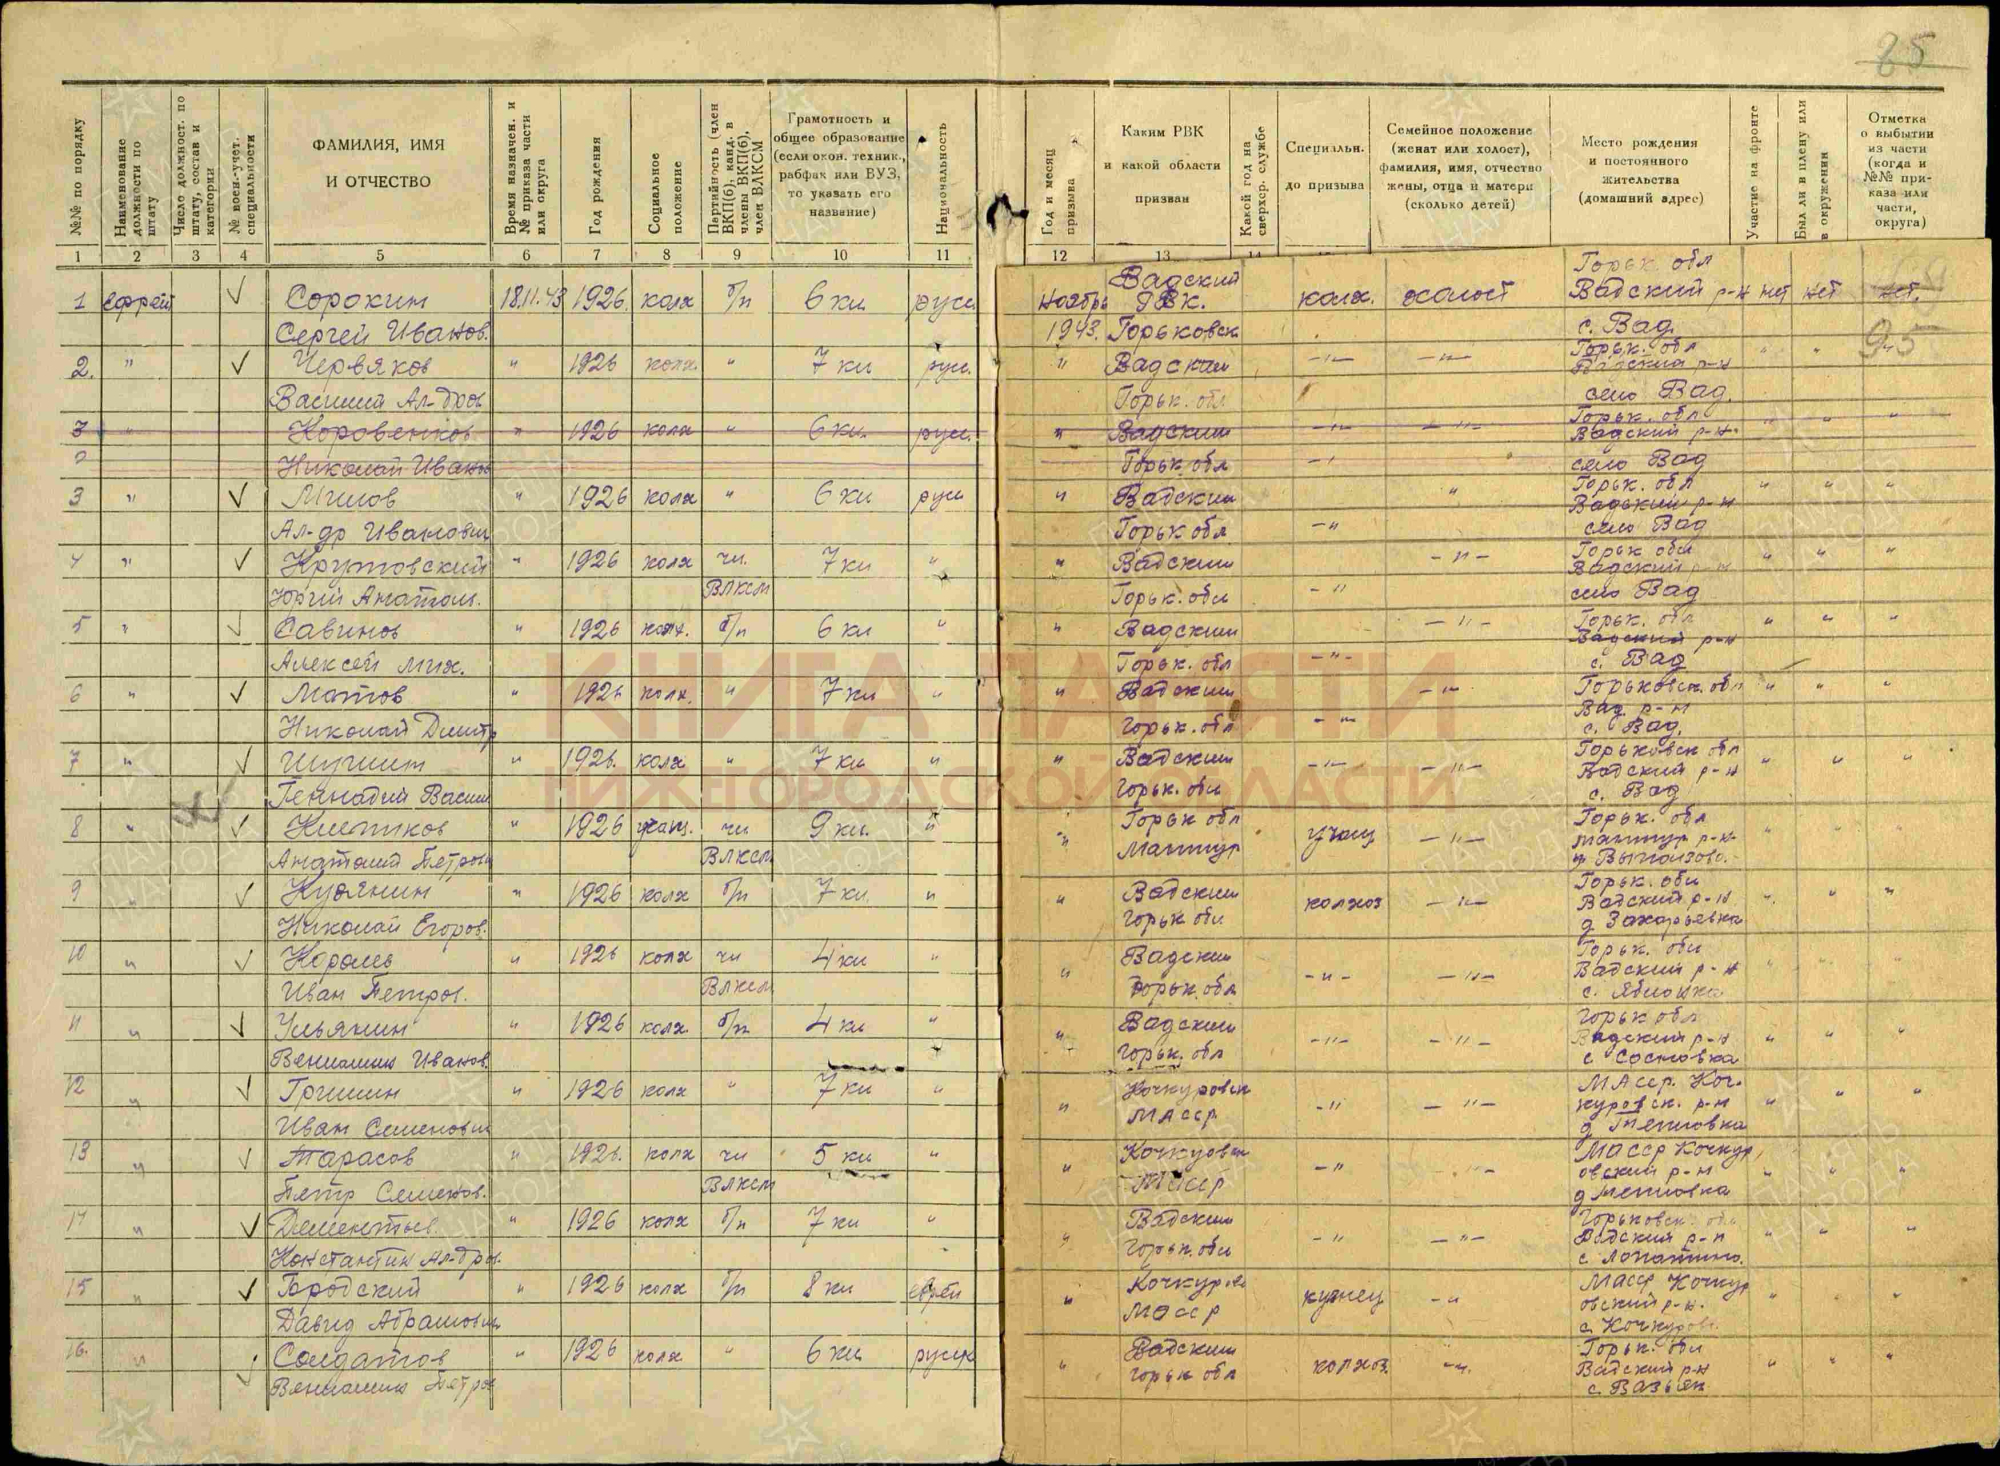 85
№№ по порядку
Наименование должности по штату
Число должност. по штату, состав и категории
№ воен.-учет. специальности
ФАМИЛИЯ, ИМЯ
И ОТЧЕСТВО
Время назначен. и № приказа части или округа
Год рождения
Социальное положение
Партийность (член ВКП(б), канд. в члены ВКП(б), член ВЛКСМ
Грамотность и
общее образование
(если окон. техник.,
рабфак или ВУЗ,
то указать его
название)
Национальность
Год и месяц призыва
Каким РВК
и какой области
призван
Какой год на сверхср. службе
Специальн.
до призыва
Семейное положение
(женат или холост),
фамилия, имя, отчество
жены, отца и матери
(сколько детей)
Место рождения
и постоянного
жительства
(домашний адрес)
Участие на фронте
Был ли в плену или в окружении
Отметка
о выбытии
из части
(когда и
№№ при-
каза или
части,
округа)
1 2 3 4 5 6 7 8 9 10 11 12 13
Горьк. обл
1 Сорокин 18.11.43 1926 колх б/п 6 кл русс. ноябрь Вадский РВК. колх. холост Вадский р-н нет нет нет.
Сергей Иванов. 1943. Горьковск с. Вад.
95
2. " Червяков " 1926 колх. " 7 кл русс. " Вадский -"- -"- Горьк. обл Вадский р-н
Василий Ал-дров Горьк. обл село Вад.
3 " Коровенков " 1926 колх " 6 кл. русс. " Вадский -"- -"- Горьк. обл Вадский р-н.
Николай Иванов Горьк. обл село Вад
3 " Милов " 1926 колх " 6 кл русс " Вадский " Горьк. обл Вадский р-н
Ал-др Иванович Горьк обл -" село Вад
4 " Крутовский " 1926 колх чл. 7 кл " " Вадский -"- Горьк обл Вадский р-н
Юрий Анатол. ВЛКСМ Горьк. обл -" село Вад
5 " Савинов " 1926 колх. б/п 6 кл " " Вадский -"- Горьк. обл Вадский р-н
Алексей Мих. Горьк. обл -"- с. Вад
6 " Мотов " 1926 колх. " 7 кл " " Вадский -"- Горьковск. обл Вад р-н
Николай Дмитр Горьк. обл -"- с. Вад.
7 " " 1926. колх " 7 кл " " Вадский -"- -"- Горьковск обл Вадский р-н
Геннадий Васил Горьк. обл с. Вад
8 " " 1926 учащ. чл 9 кл. " " Горьк обл учащ -"- Горьк. обл
Анатолий Петров ВЛКСМ
9 " " 1926 колх б/п 7 кл. " " Вадский колхоз -"- Горьк. обл Вадский р-н
Николай Егоров. Горьк обл д Захарьевка
10 " Король " 1926 колх чл 4 кл " " Вадский -"- -"- Горьк. обл Вадский р-н
Иван Петров. ВЛКСМ Горьк. обл с. Яблонка
11 " Ульянин " 1926 колх. б/п 4 кл " " Вадский -"- -"- Горьк обл Вадский р-н
Вениамин Иванов. Горьк. обл с Сосновка
12 " Гришин " 1926 колх " 7 кл " " Кочкуровск -" -"- МАССР. Коч-
Иван Семенович МАССР куровск. р-н
д Тепловка
13 " Тарасов " 1926. колх чл 5 кл " " -" -"- МАССР Кочкур
Петр Семенов. ВЛКСМ МАССР овский р-н
д Тепловка
14 " Дементьев " 1926 колх б/п 7 кл " " Вадский -" -"- Горьковск. обл Вадский р-н
Константин Ал-дров. Горьк. обл с Лопатино.
15 " Бродский " 1926 колх б/п 8 кл еврей " кузнец -" МАССР Кочкур
Давид Абрамович МАССР овский р-н.
с. Кочкурово
16. " Солдатов " 1926 колх " 6 кл русск " Вадский колхоз. -"- Горьк. обл Вадский р-н
Вениамин Петров Горьк обл
КНИГА ПАМЯТИ
НИЖЕГОРОДСКОЙ ОБЛАСТИ